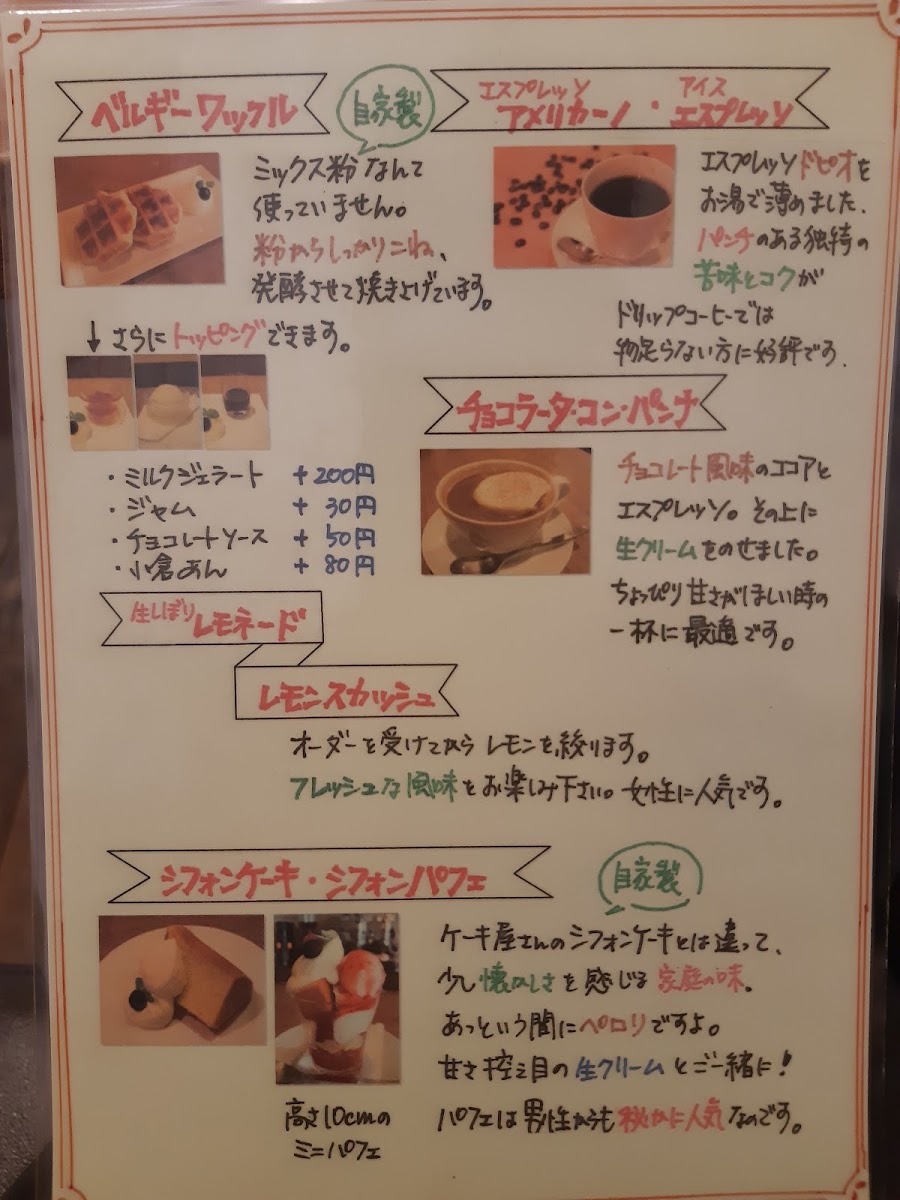 ベルギーワッフル
自家製
ミックス粉なんて
使っていません。
粉からしっかりこね、
発酵させて焼き上げています。
↓さらにトッピングできます。
・ミルクジェラート +200円
・ジャム +30円
・チョコレートソース +50円
・小倉あん +80円
エスプレッソ アイス
アメリカーノ・エスプレッソ
エスプレッソドピオを
お湯で薄めました、
パンチのある独特の
苦味とコクが
ドリップコーヒーでは
物足らない方に好評です.
チョコラータ・コン・パンナ
チョコレート風味のココアと
エスプレッソ。その上に
生クリームをのせました。
ちょっぴり甘さがほしい時の
一杯に最適です。
生しぼり レモネード
レモンスカッシュ
オーダーを受けてから レモンを絞ります。
フレッシュな風味をお楽しみ下さい。女性に人気です。
シフォンケーキ・シフォンパフェ
自家製
ケーキ屋さんのシフォンケーキとは違って、
少し懐かしさを感じる家庭の味。
あっという間にペロリですよ。
甘さ控え目の生クリームとご一緒に!
パフェは男性からも秘かに人気なのです。
高さ10cmの
ミニパフェ